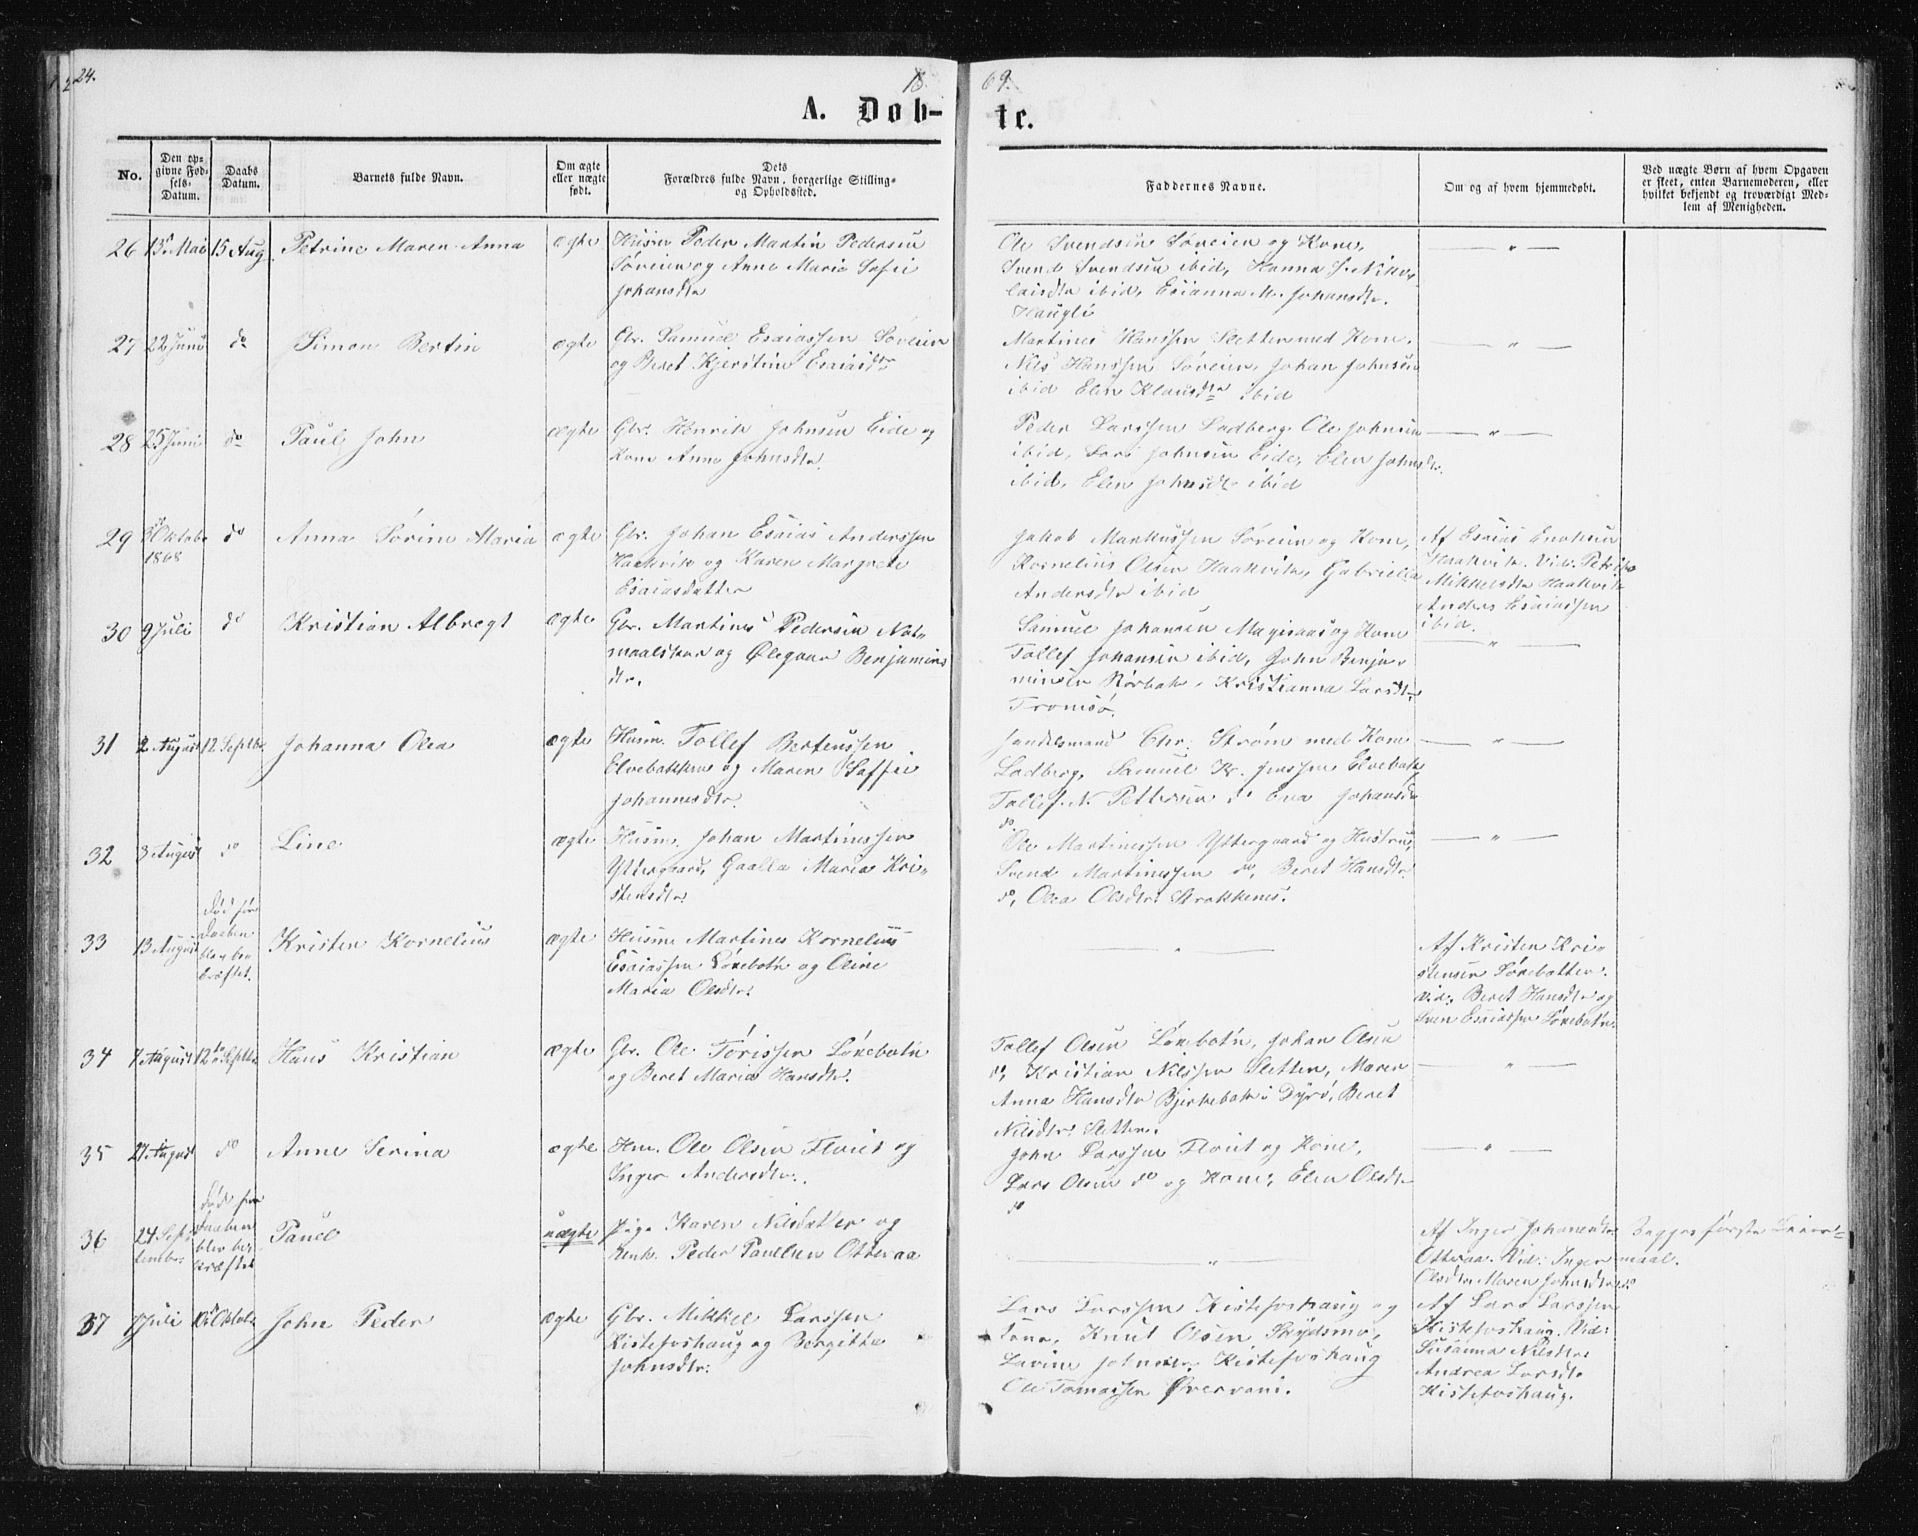 24.
18
69.
A. Døb-
te.
No.
Den op-
givne Fød-
sels-
Datum.
Daabs
Datum.
Barnets fulde Navn.
Om ægte
eller uægte
født.
Dets
Forældres fulde Navn, borgerlige Stilling
og Opholdssted.
Faddernes Navne.
Om og af hvem hjemmedøbt.
Ved uægte Børn af hvem Opgaven
er skeet, enten Barnemoderen, eller
hvilket bekjendt og troværdigt Med-
lem af Menigheden.
26 13 Mai 15 Aug Petrine Maren Anna ægte Husm Peder Martin Pedersen
Søreien og Anne Maria Sofie
Johansdtr
Ole Svendsen Søreien og Kone,
Svend Svendsen ibid, Hanna S. Niko-
laisdtr ibid, Esianna M. Johansdtr.
Haugli
— " —
27 22 Juni do Simon Bertin ægte Gbr. Samuel Esaiassen Søreien
og Beret Kjerstine Esaiasdtr
Martines Hanssen Sletten med Kone.
Nils Hanssen Søreien, Johan Johnsen
ibid Elen Klausdtr ibid
— " —
28 25 Juni do Paul John ægte Gbr. Henrik Johnsen Eide og
Kone Anne Johnsdtr.
Peder Larssen Ladberg Ole Johnsen
ibid, Lars Johnsen Eide, Elen Johnsdtr.
ibid, Elen Johnsdtr ibid
— " —
29 Oktobr
1868 do Anna Sørine Maria ægte Gbr. Johan Esaias Anderssen
Haakvik og Karen Margrete
Esaiasdatter
Jakob Markussen Søreien og Kone,
Kornelius Olsen Haakvik, Gabriella
Andersdtr ibid
Af Esaias Enoksen
Haakvik. Vid: Petrike
Mikkelsdtr Haakvik
Anders Esaiassen
ibid.
30 9 Juli do Kristian Albregt ægte Gbr. Martines Pedersen Not-
maalskar og Ølegaar Benjamins
dtr.
Samuel Johansen Magisaas og Kone
Tollef Johansen ibid, John Benja-
minsen Nørbak, Kristianna Larsdtr
Tromsø.
— " —
31 2 August 12 Septbr. Johanna Olea ægte Husm. Tollef Bertenssen
Elvebakken og Maren Soffie
Johannesdtr.
Handelsmand Chr. Strøm med Kone
Ladberg, Samuel Kr. Jenssen Elvebak
Tollef N. Pettersen do Eva Johansdtr
do
— " —
32 3 August do Line ægte Husm. Johan Martinussen
Yttergaard, Gaalla Maria Kri-
stensdtr.
Ole Martinussen Yttergaard og Hustru,
Svend Martinussen do, Beret Hansdtr.
do, Olea Olsdtr Krokkenes.
— " —
33 13 August Død før
Daaben
blev be-
kræftet. Kristen Kornelius ægte Husm. Martines Kornelius
Esaiassen Lønebotn og Oline
Maria Olsdtr.
— " —
Af Kristen Kri-
stensen Lønebotten.
Vid: Beret Hansdtr og
Sven Esaiassen Lønebotn.
34 7 August 12te Septbr. Hans Kristian ægte Gbr. Ole Tørissen Lønebotn
og Beret Maria Hansdtr.
Tollef Olsen Lønebotn, Johan Olsen
do, Kristian Nilssen Sletten, Maren
Anna Hansdtr Bjerkebak i Dyrø, Beret
Nilsdtr. Sletten.
— " —
35 27 August do Anne Serina ægte Hm. Ole Olsen Floiet og
Inger Andersdtr.
John Larssen Floiet og Kone,
Lars Olsen do og Kone, Elen Olsdtr
do
— " —
36 24 Sep-
tember Død før
Daaben
blev be-
kræftet Pauel uægte Pige Karen Nilsdatter og
Unk. Peder Paulsen Otteraa
— " —
Af Inger Johansdtr
Otteraa. Vid: Inger
Olsdtr Maren Johnsdtr do
Begges første Leier-
maal.
37 7 Juli 10 Oktobr John Peder ægte Gbr. Mikkel Larssen
Kistefoshaug og Bergitte
Johnsdtr.
Lars Larssen Kistefoshaug og
Kone, Knut Olsen Strydsmo,
Lavine Johnsdtr Kistefoshaug
Ole Tomassen Øvervani.
Af Lars Larssen
Kistefoshaug. Vid:
Susanna Nilsdtr
Andrea Larsdtr
Kistefoshaug.